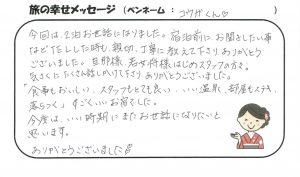 旅の幸せメッセージ (ペンネーム : コウガくん♡ )
今回は、2泊お世話になりました。宿泊前に、お聞きしたい事
などTELした時も、親切、丁寧に教えて下さり、ありがとう
ございました。旦那様、若女将様はじめスタッフの方々、
気さくにたくさん話しかけて下さりありがとうございました。
「食事もおいしい、スタッフもとても良い、いい温泉、部屋もステキ、
落ちつく」すごくいいお宿でした。
今度は、いい時期にまたお世話になりたいと
思います。
ありがとうございました